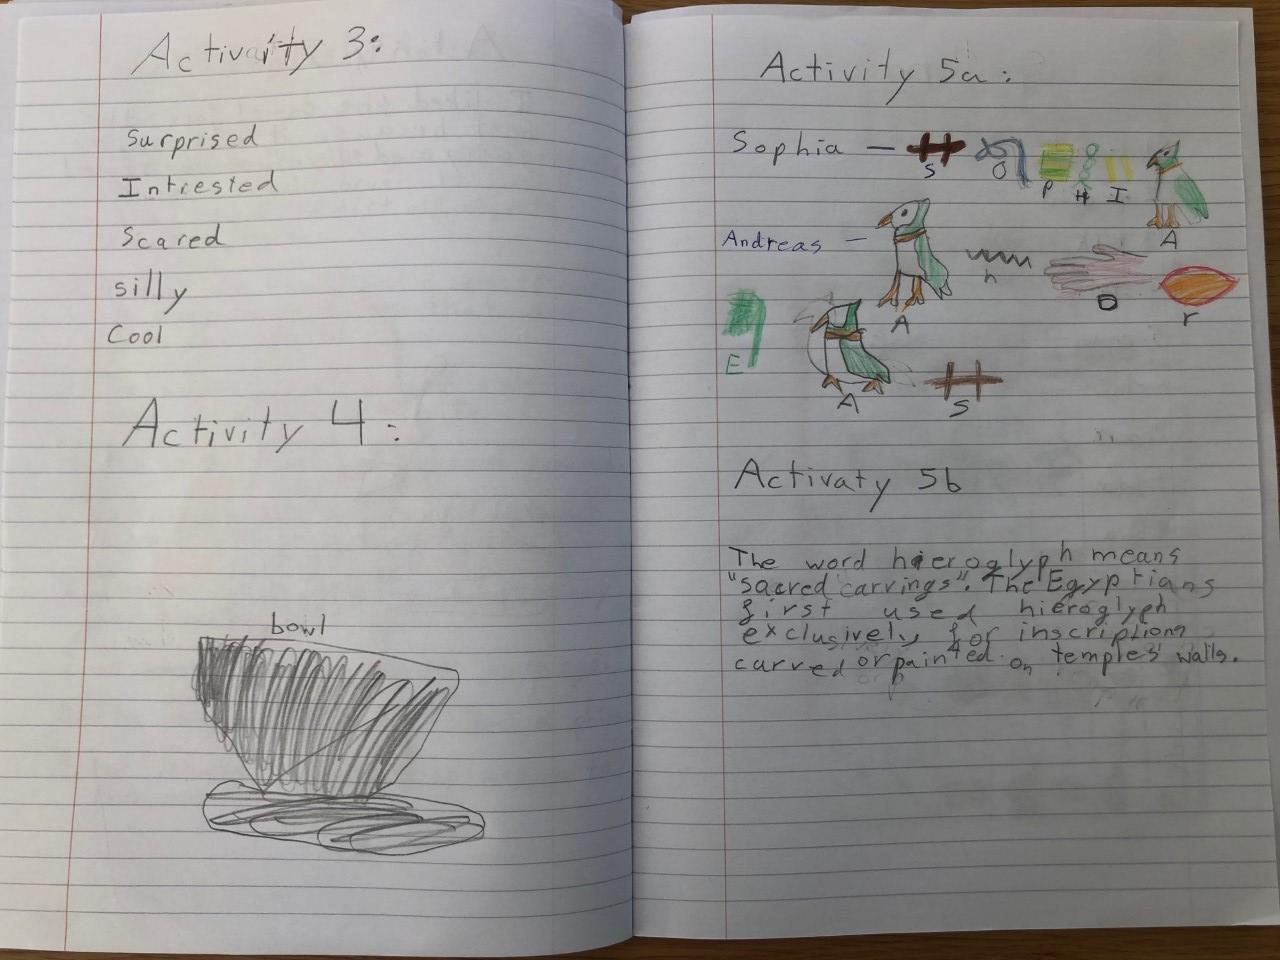 Activity 3:
Surprised
Intrested
Scared
silly
Cool
Activity 4:
bowl
Activity 5a:
Sophia —
S O P H I A
Andreas —
A n D r
E A S
Activaty 5b
The word hieroglyph means
"sacred carvings". The Egyptians
first used hieroglyph
exclusively for inscriptions
carved or painted on temples walls.